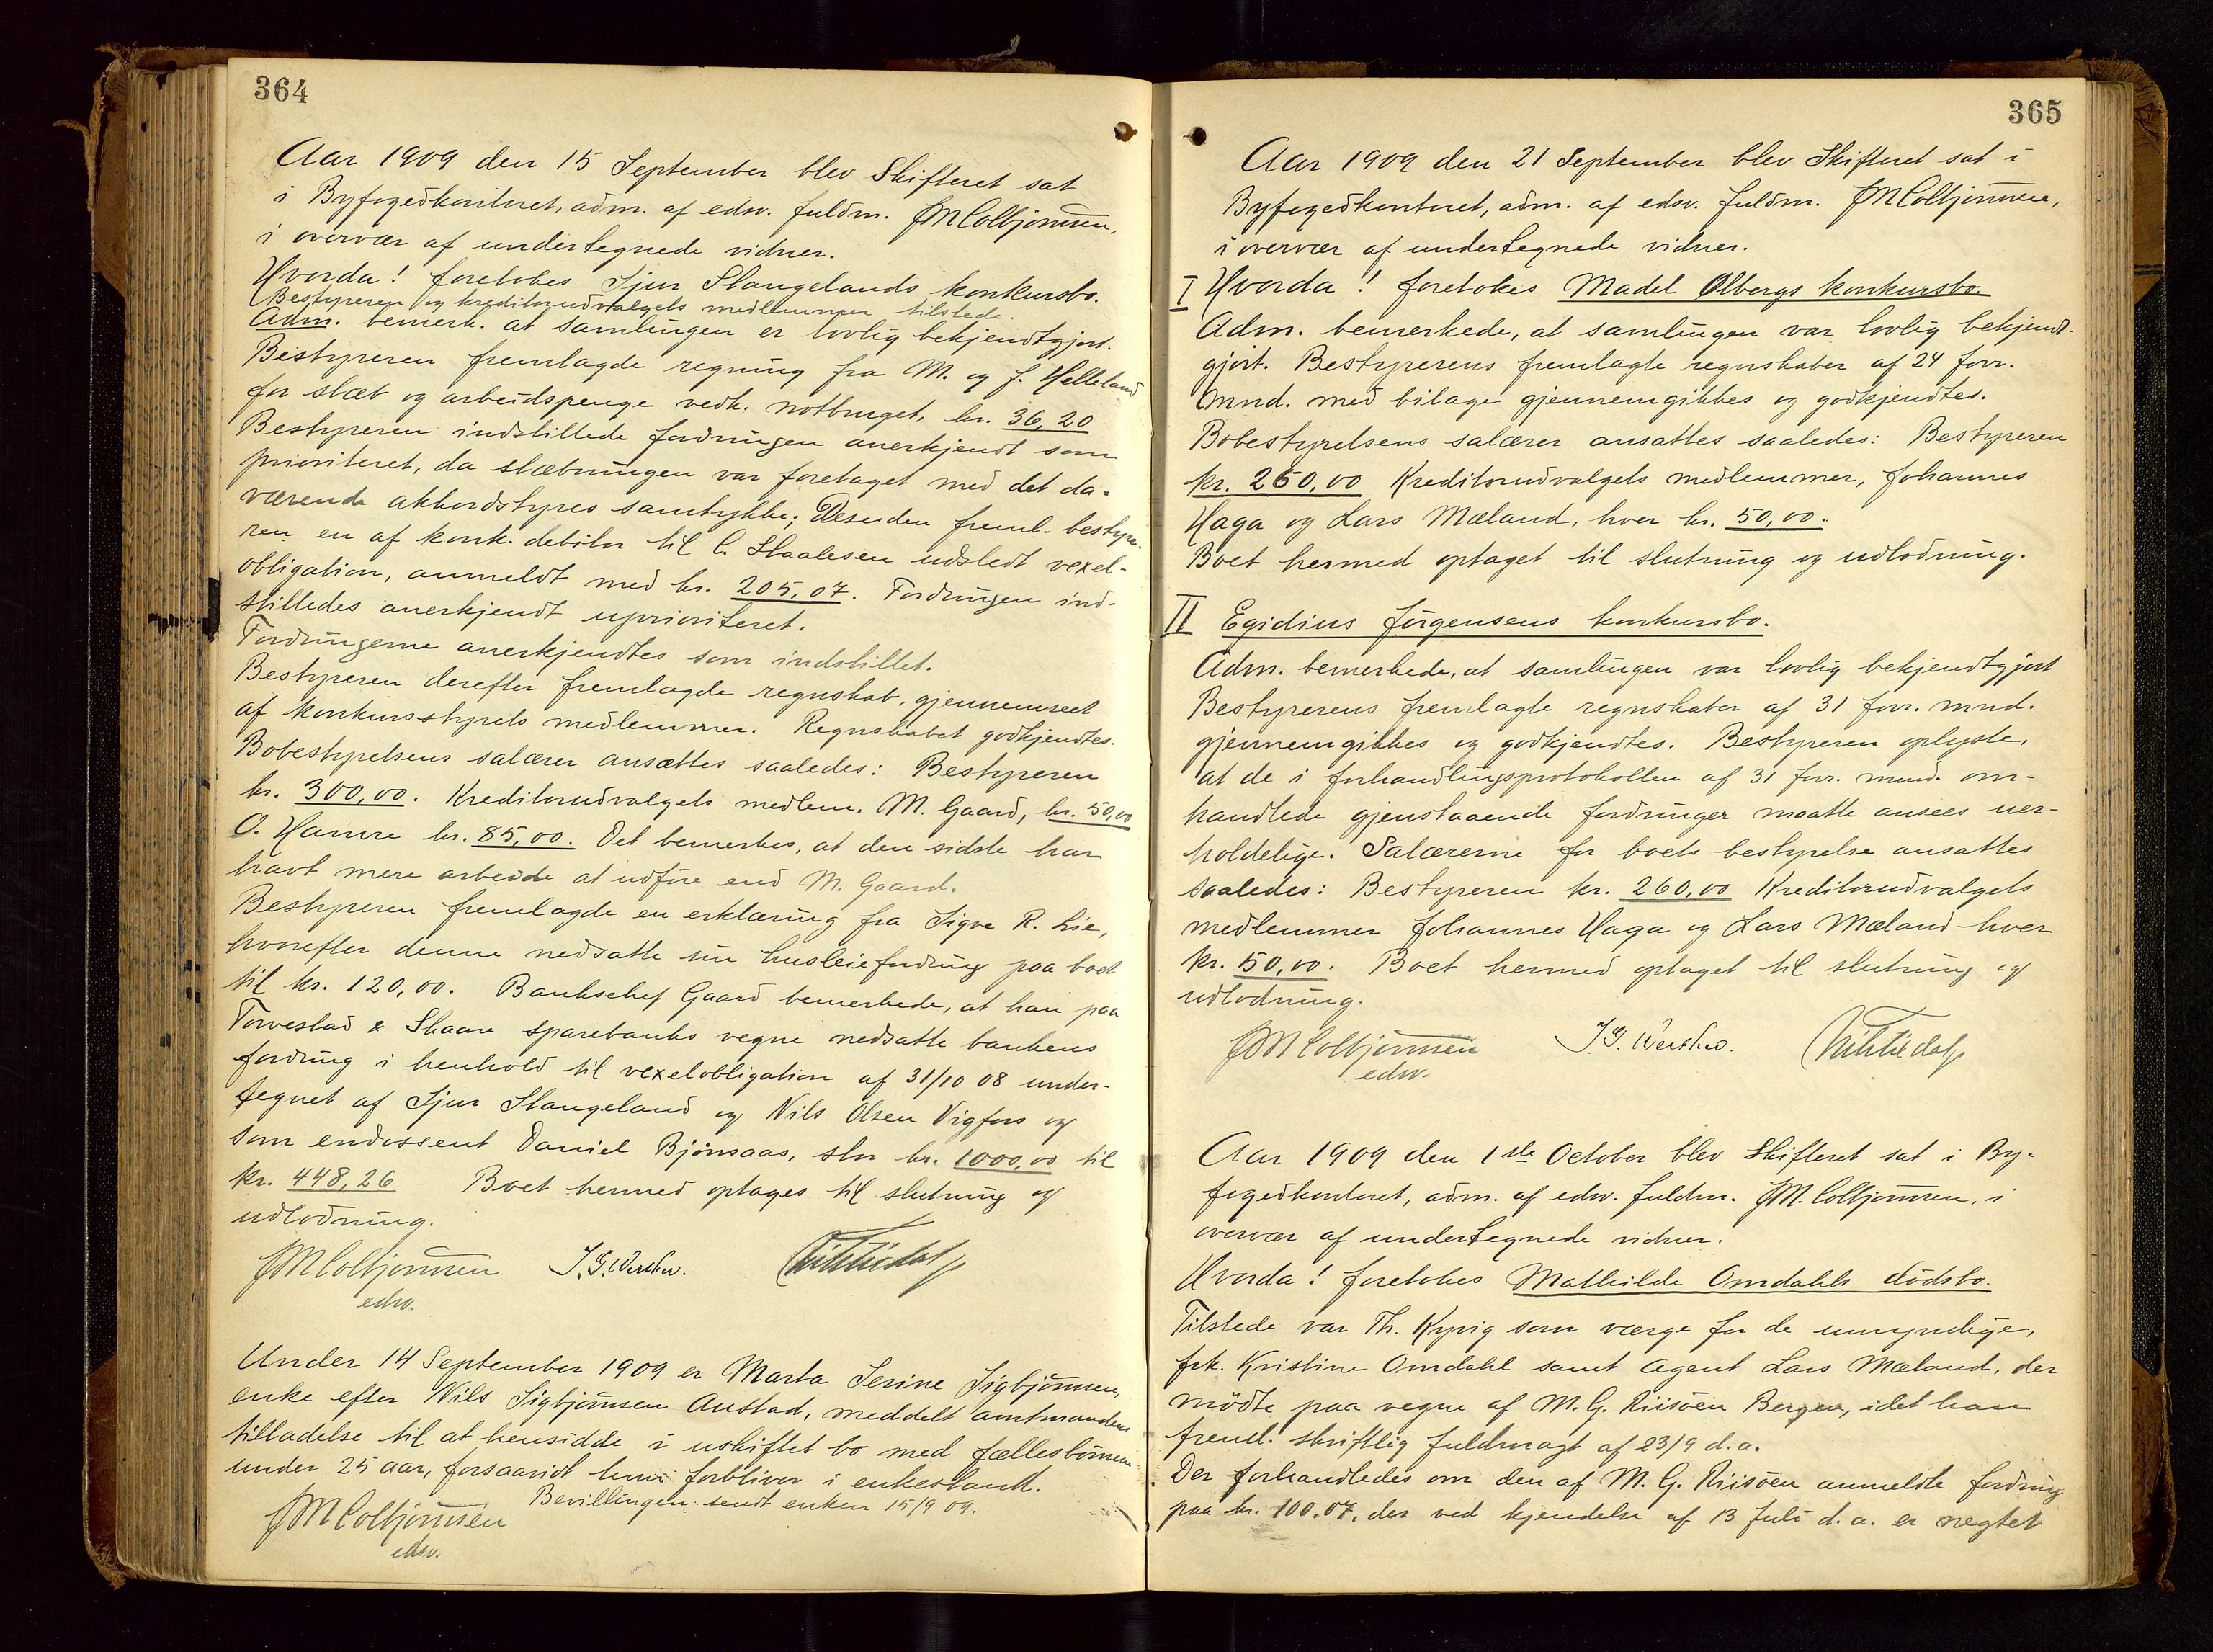 364
Aar 1909 den 15 September blev Skifteret sat
i Byfogedkontoret, adm. af edsv. fuldm. JMColbjørnsen,
i overvær af undertegnede vidner.
Hvorda! foretokes Sjur Stangelands konkursbo.
Bestyreren og kreditorudvalgets medlemmer tilstede.
Adm. bemerk. at samlingen er lovlig bekjendtgjort.
Bestyreren fremlagde regning fra M. og J. Helleland
for slæb og arbeidspenge vedk. notbruget, kr. 36,20
Bestyreren indstillede fordringen anerkjendt som
prioriteret, da slæbningen var foretaget med det da-
værende akkordstyres samtykke; Desuden freml. bestyre-
ren en af konk. debitor til C. Staalesen udstedt vexel-
obligation, anmeldt med kr. 205,07. Fordringen ind-
stilledes anerkjendt uprioriteret.
Fordringerne anerkjendtes som indstillet.
Bestyreren derefter fremlagde regnskab, gjennemseet
af konkursstyrets medlemmer. Regnskabet godkjendtes.
Bobestyrelsens salærer ansættes saaledes: Bestyreren
kr. 300,00. Kreditorudvalgets medlem. M. Gaard, kr. 50,00
O. Hamre kr. 85,00. Det bemerkes, at den sidste har
havt mere arbeide at udføre end M. Gaard.
Bestyreren fremlagde en erklæring fra Sigve R. Lie,
hvorefter denne nedsatte sin husleiefordring paa boet
til kr. 120,00. Bankchef Gaard bemerkede, at han paa
Torvestad & Skaare sparebanks vegne nedsatte bankens
fordring i henhold til vexelobligation af 31/10 08 under-
tegnet af Sjur Stangeland og Nils Olsen Vigfors og
som endossent Daniel Bjørnsaas, stor kr. 1000,00 til
kr. 448,26 Boet hermed optages til slutning og
udlodning.
JMColbjørnsen
edsv.
Under 14 September 1909 er Marta Serine Sigbjørnsen,
enke efter Nils Sigbjørnsen Austad, meddelt amtmandens
tilladelse til at hensidde i uskiftet bo med fællesbørnene
under 25 aar, forsaavidt hun forbliver i enkestand.
Bevillingen sendt enken 15/9 09.
JMColbjørnsen
edsv.
365
Aar 1909 den 21 September blev Skifteret sat i
Byfogedkontoret, adm. af edsv. fuldm. JMColbjørnsen,
i overvær af undertegnede vidner.
I Hvorda! foretokes Madel Ølbergs konkursbo.
Adm. bemerkede, at samlingen var lovlig bekjendt-
gjort. Bestyrerens fremlagte regnskaber af 24 forr.
mnd. med bilage gjennemgikkes og godkjendtes.
Bobestyrelsens salærer ansattes saaledes: Bestyreren
kr. 260,00 Kreditorudvalgets medlemmer, Johannes
Haga og Lars Mæland, hver kr. 50,00.
Boet hermed optaget til slutning og udlodning.
II Egidius Jørgensens konkursbo.
Adm. bemerkede, at samlingen var lovlig bekjendtgjort
Bestyrerens fremlagte regnskaber af 31 forr. mnd.
gjennemgikkes og godkjendtes. Bestyreren oplyste,
at de i forhandlingsprotokollen af 31 forr. mnd. om-
handlede gjenstaaende fordringer maatte ansees uer-
holdelige. Salærerne for boets bestyrelse ansattes
saaledes: Bestyreren kr. 260,00 Kreditorudvalgets
medlemmer Johannes Haga og Lars Mæland hver
kr. 50,00. Boet hermed optaget til slutning og
udlodning.
JMColbjørnsen
edsv.
Aar 1909 den 1ste October blev Skifteret sat i By-
fogedkontoret, adm. af edsv. fuldm. JM.Colbjørnsen, i
overvær af undertegnede vidner.
Hvorda! foretokes Mathilde Omdahls dødsbo.
Tilstede var Th. Kyvig som værge for de umyndige,
frk. Kristine Omdahl samt agent Lars Mæland, der
mødte paa vegne af M. G. Riisøen Bergen, idet han
freml. skriftlig fuldmagt af 23/9 d.a.
Der forhandledes om den af M. G. Riisøen anmeldte fordring
paa kr. 100.07. der ved kjendelse af 13 Juli d. a. er negtet